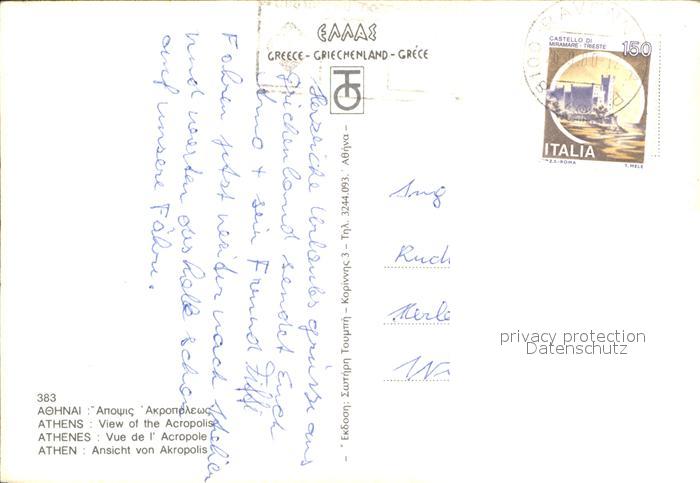 ΕΛΛΑΣ
GREECE - GRIECHENLAND - GRÈCE
CASTELLO DI
MIRAMARE · TRIESTE
150
ITALIA
I.P.Z.S.-ROMA
T. MELE
Herzliche Urlaubsgrüsse aus
Griechenland sendet Euch
+ sein Freund
Fahren jetzt weiter nach Italien
und warten deshalb schon
auf unsere Fähre.
Έκδοση: Σωτήρη Τουμπή – Κορίννης 3 – Τηλ. 3244.093. Αθήνα –
privacy protection
Datenschutz
383
ΑΘΗΝΑΙ : Ἄποψις Ἀκροπόλεως
ATHENS : View of the Acropolis
ATHENES : Vue de l' Acropole
ATHEN : Ansicht von Akropolis